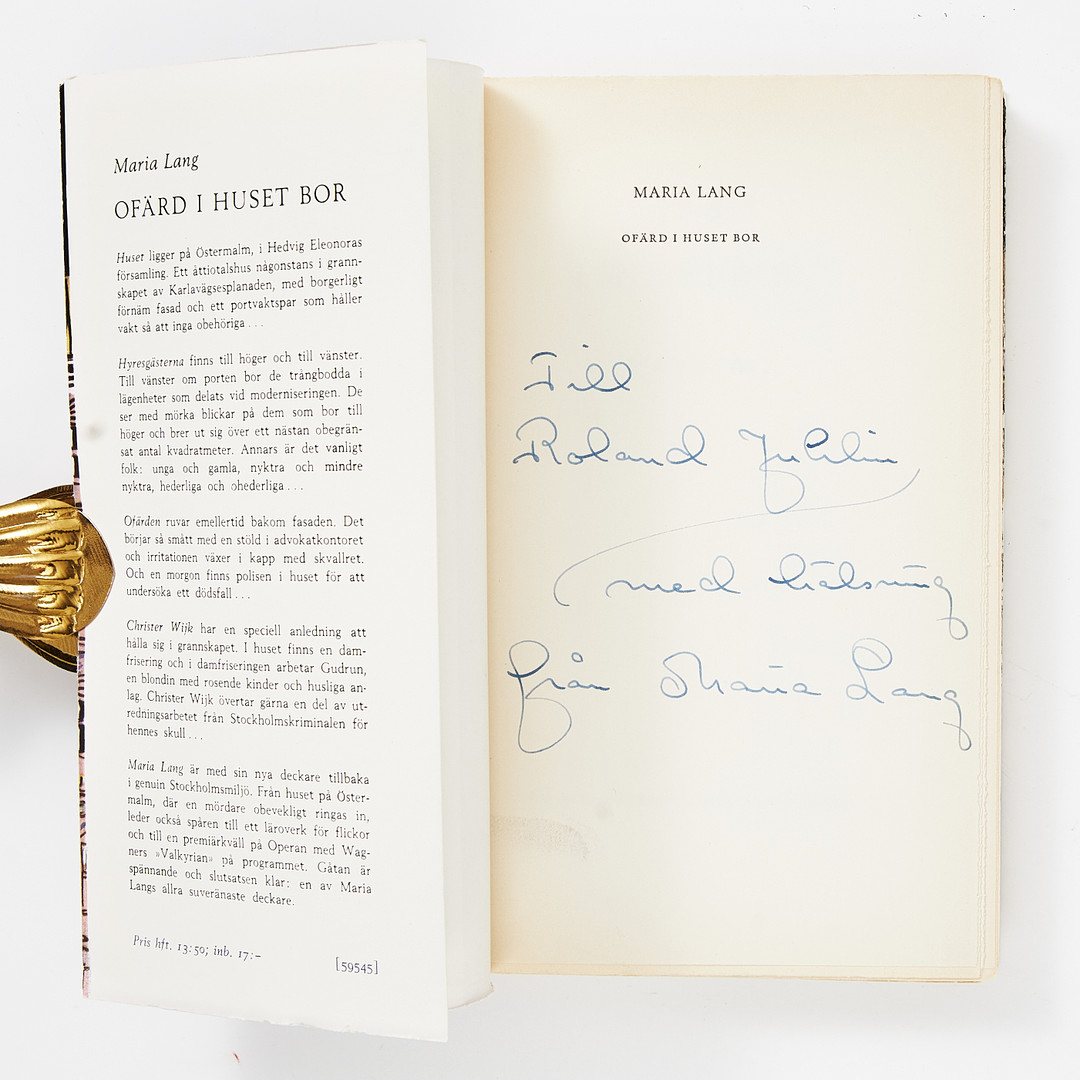 Maria Lang
OFÄRD I HUSET BOR
Huset ligger på Östermalm, i Hedvig Eleonoras
församling. Ett åttiotalshus någonstans i grann-
skapet av Karlavägsesplanaden, med borgerligt
förnäm fasad och ett portvaktspar som håller
vakt så att inga obehöriga ...
Hyresgästerna finns till höger och till vänster.
Till vänster om porten bor de trångbodda i
lägenheter som delats vid moderniseringen. De
ser med mörka blickar på dem som bor till
höger och brer ut sig över ett nästan obegrän-
sat antal kvadratmeter. Annars är det vanligt
folk: unga och gamla, nyktra och mindre
nyktra, hederliga och ohederliga ...
Ofärden ruvar emellertid bakom fasaden. Det
börjar så smått med en stöld i advokatkontoret
och irritationen växer i kapp med skvallret.
Och en morgon finns polisen i huset för att
undersöka ett dödsfall ...
Christer Wijk har en speciell anledning att
hålla sig i grannskapet. I huset finns en dam-
frisering och i damfriseringen arbetar Gudrun,
en blondin med rosende kinder och husliga an-
lag. Christer Wijk övertar gärna en del av ut-
redningsarbetet från Stockholmskriminalen för
hennes skull ...
Maria Lang är med sin nya deckare tillbaka
i genuin Stockholmsmiljö. Från huset på Öster-
malm, där en mördare obevekligt ringas in,
leder också spåren till ett läroverk för flickor
och till en premiärkväll på Operan med Wag-
ners »Valkyrian» på programmet. Gåtan är
spännande och slutsatsen klar: en av Maria
Langs allra suveränaste deckare.
Pris hft. 13:50; inb. 17:–
[59545]
MARIA LANG
OFÄRD I HUSET BOR
Till
Roland Juhlin
med hälsning
från Maria Lang